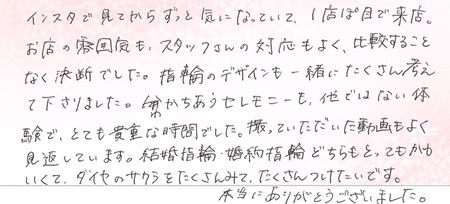 インスタで見てからずっと気になっていて、1店ぽ目で来店。
お店の雰囲気も、スタッフさんの対応もよく、比較すること
なく決断でした。指輪のデザインも一緒にたくさん考え
て下さりました。分かちあうセレモニーも、他ではない体
験で、とても貴重な時間でした。撮っていただいた動画もよく
見返しています。結婚指輪・婚約指輪どちらもとってもかわ
いくて、ダイヤのサクラをたくさんみて、たくさんつけたいです。
本当にありがとうございました。